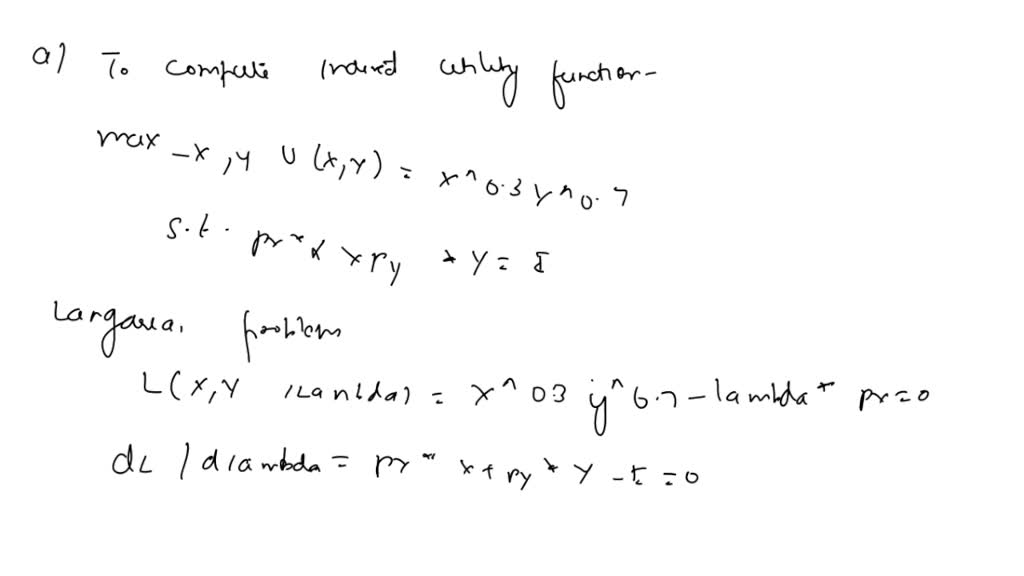 a) To compute utility function-
max_x,y U(x,y) = x^0.3 y^0.7
s.t. px*x + py * y = I
problem
L(x,y = x^03 y^0.7 - lambda* px=0
dL/dlambda = px* x + py * y - I = 0